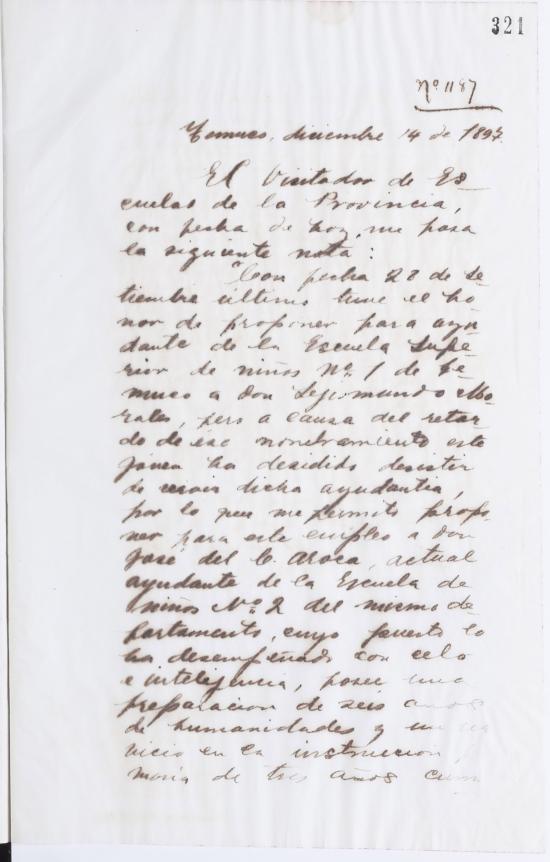 321
Nº 1187
Temuco, diciembre 14 de 1897.
El Visitador de Es-
cuelas de la Provincia,
con fecha de hoy, me pasa
la siguiente nota:
"Con fecha 28 de Se-
tiembre último tuve el ho-
nor de proponer para ayu
dante de la Escuela Supe-
rior de niños Nº 1 de Te-
muco a don Sejismundo Mo-
rales, pero a causa del retar
do de ese nombramiento este
jóven ha desidido desistir
de dicha ayudantia,
por lo que me permito propo-
ner para este empleo a don
José del C. Aroca, actual
ayudante de la Escuela de
niños Nº 2 del mismo de-
partamento, cuyo puesto lo
ha desempeñado con celo
e intelijencia, posee una
preparacion de seis años
de humanidades y un
vicio en la instruccion
maria de tres años